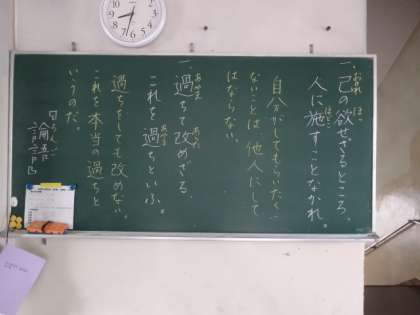 一、己の欲せざるところ、
人に施すことなかれ。
自分がしてもらいたく
ないことは他人にして
はならない。
一、過ちて改めざる、
これを過ちといふ。
過ちをしても改めない。
これを本当の過ちと
いうのだ。
論語